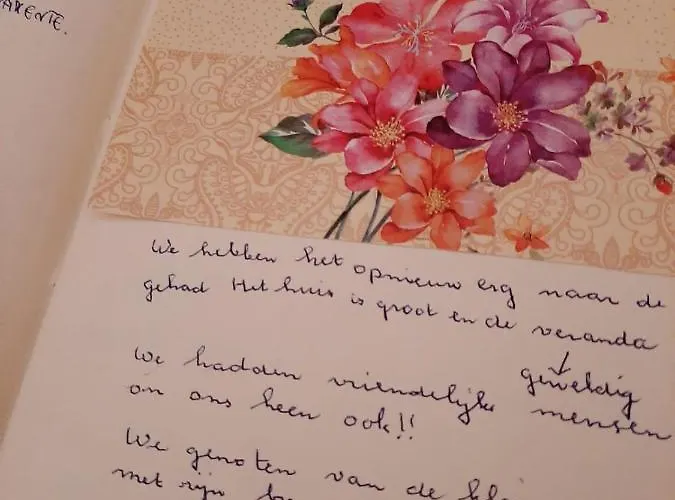 We hebben het opnieuw erg naar de
gehad Het huis is groot en de veranda
geweldig
We hadden vriendelijke mensen
om ons heen ook!!
We genoten van de
met zijn